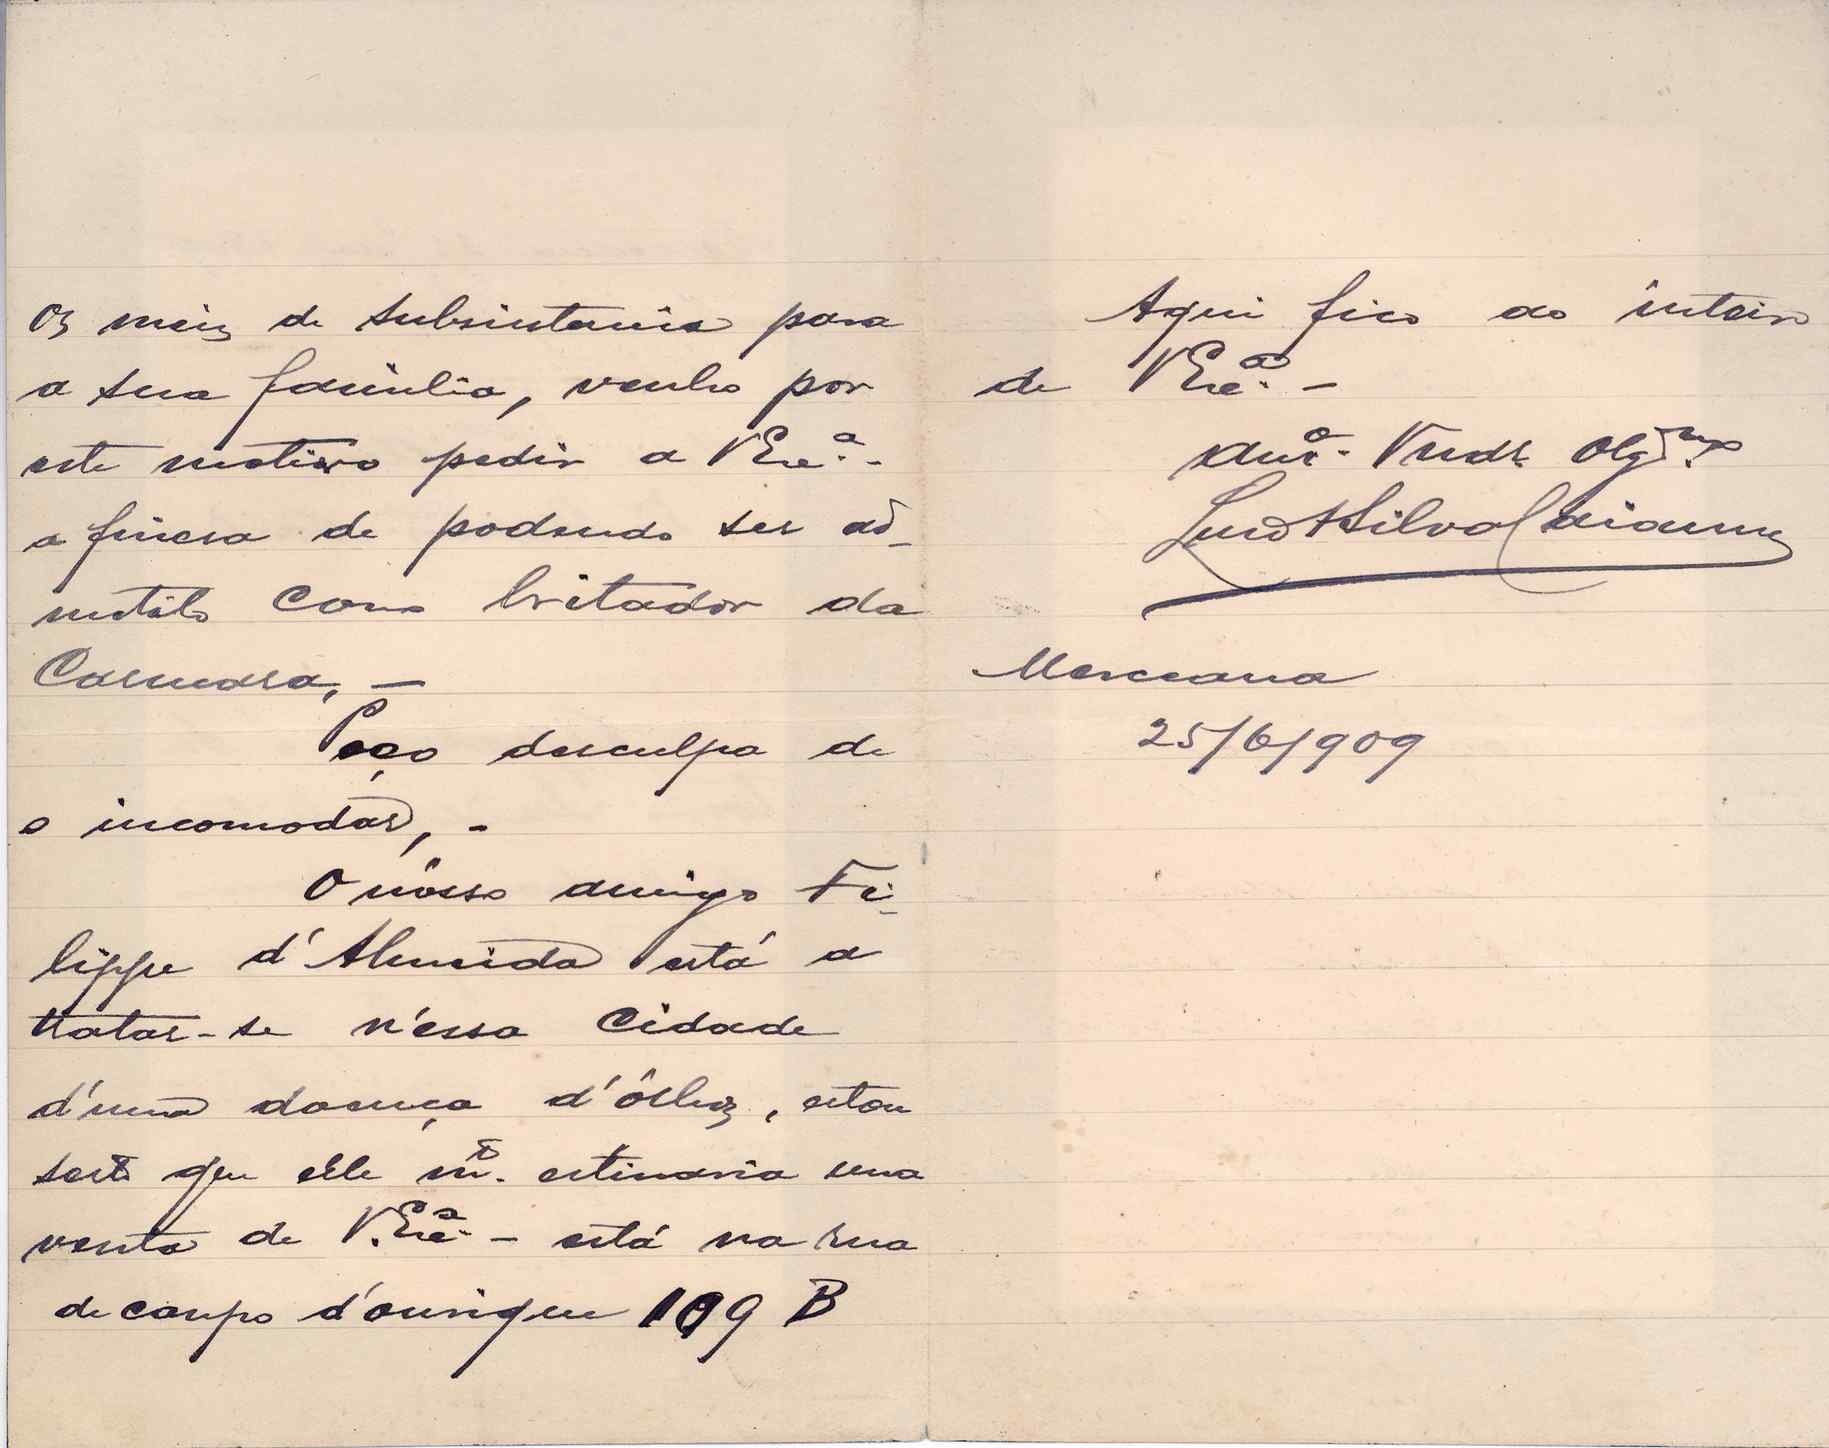 os meiz de subsistencia para
a sua familia, venho por
este motivo pedir a V Ex.ª -
a finesa de podendo ser ad-
mitilo como britador da
Camara, -
Peço desculpa de
o incomodar, -
O nósso amigo Fi-
lippe d'Almeida está a
tratar-se n'essa Cidade
d'uma doença d'ólhos, estou
serto que elle m.to estimaria uma
vesita de V. Ex.ª - está na rua
de campo d'ourique 109 B
Aqui fico ao inteiro
de V Ex.ª -
Am.º Vnd.r Obg.mo
Silva
Merceana
25/6/909